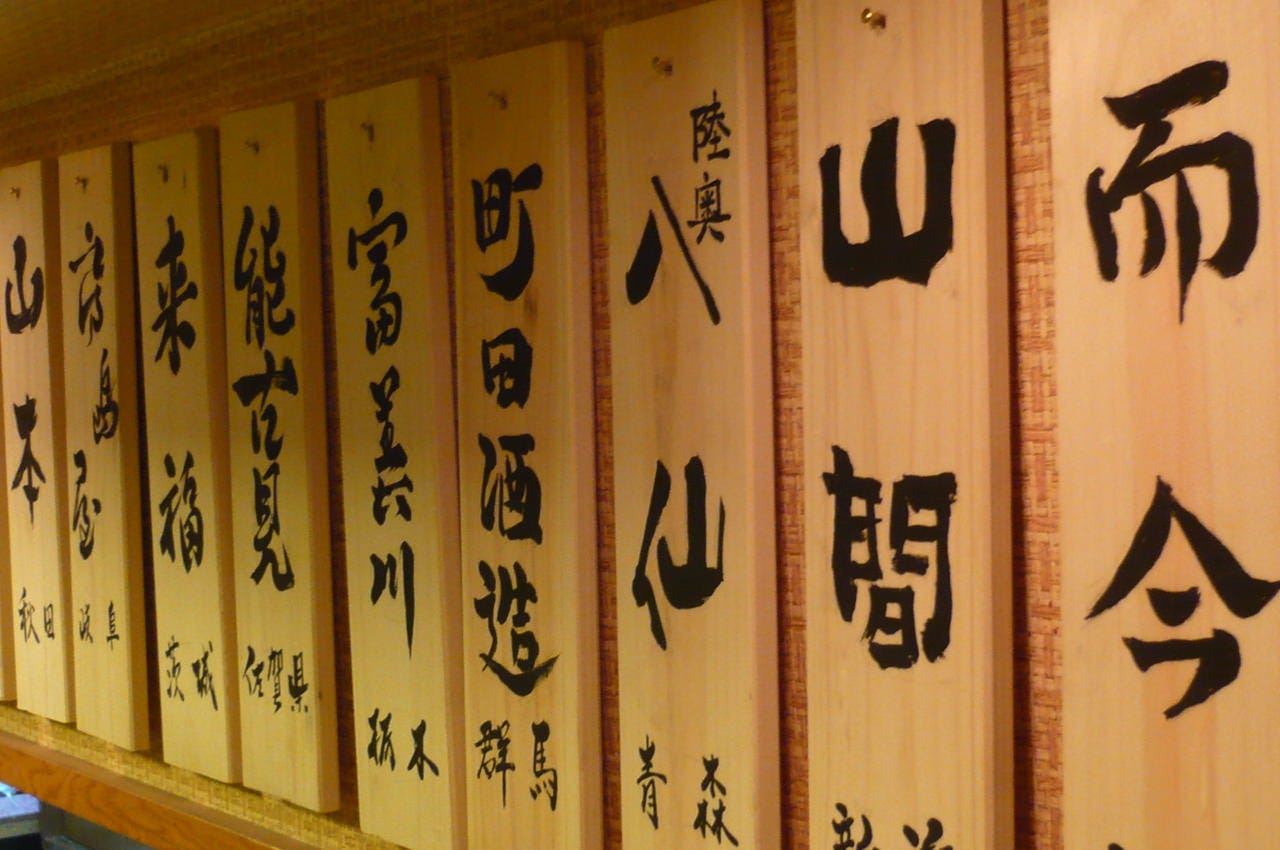 而今
山間
新潟
陸奥
八仙
青森
町田酒造
群馬
富美川
栃木
能古見
佐賀県
来福
茨城
房島屋
岐阜
山本
秋田